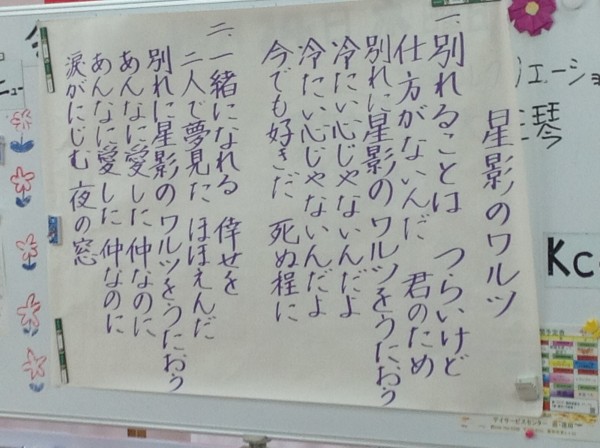 星影のワルツ
一、別れることは つらいけど
仕方がないんだ 君のため
別れに星影のワルツをうたおう
冷たい心じゃないんだよ
冷たい心じゃないんだよ
今でも好きだ 死ぬ程に
二、一緒になれる 倖せを
二人で夢見た ほほえんだ
別れに星影のワルツをうたおう
あんなに愛した仲なのに
あんなに愛した仲なのに
涙がにじむ 夜の窓
琴
Kc
デイサービスセンター